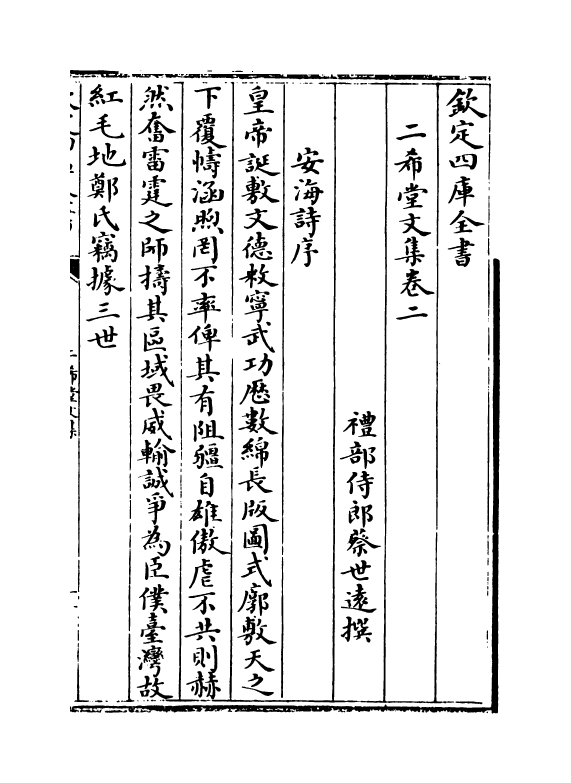 欽定四庫全書
二希堂文集卷二
禮部侍郎蔡世遠撰
安海詩序
皇帝誕敷文德敉寧武功歴數綿長版圖式廓敷天之
下覆幬涵煦罔不率俾其有阻疆自雄傲虐不共則赫
然奮雷霆之師擣其區域畏威輸誠爭為臣僕臺灣故
紅毛地鄭氏竊據三世
二希堂文集